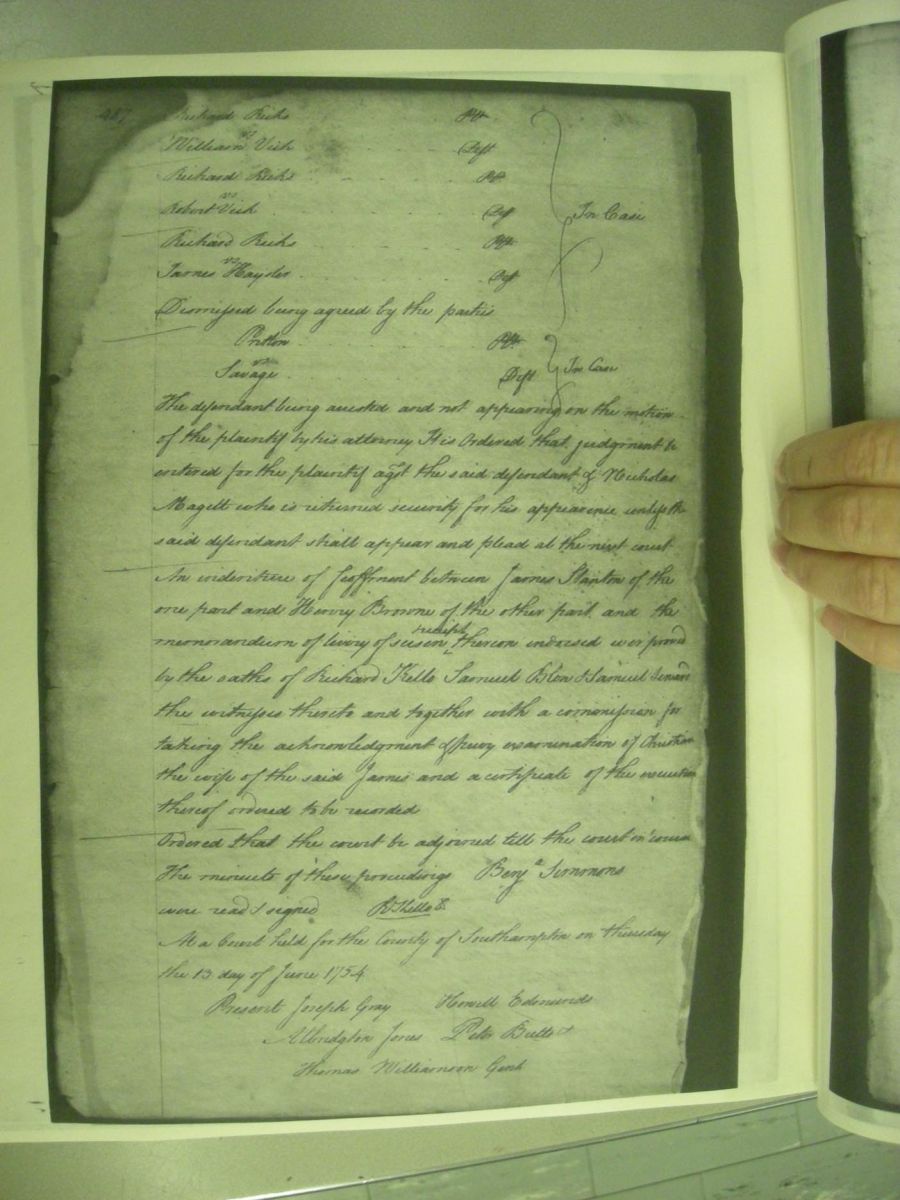 487 Richard Ricks Plt
vs
William Vick Deft
Richard Ricks Plt
vs
Robert Vick Def In Case
Richard Ricks Plt
vs
James Hayder Def
Dismissed being agreed by the parties
Preston Plt
vs
Savage Deft In Case
The defendant being arrested and not appearing on the motion
of the plaintif by his attorney It is Ordered that judgment be
entered for the plaintif agst the said defendant & Nicholas
Magett who is returned security for his appearance unless the
said defendant shall appear and plead at the next court
An indenture of feoffment between James Stanton of the
one part and Henry Browne of the other part and the
memorandum of livery of seisen receipt thereon endorsed were proved
by the oaths of Richard Kello Samuel & Samuel
the witnesses thereto and together with a commission for
taking the acknowledgment & privy examination of Christian
the wife of the said James and a certificate of the execution
thereof ordered to be recorded
Ordered that the court be adjorned till the court in course
The minuets of these proceedings Benja Simmons
were read & signed R Kello C.
At a Court held for the County of Southampton on thursday
the 13 day of June 1754
Present Joseph Gray Howell Edmunds
Albridgton Jones Peter Butts
Thomas Williamson Gent